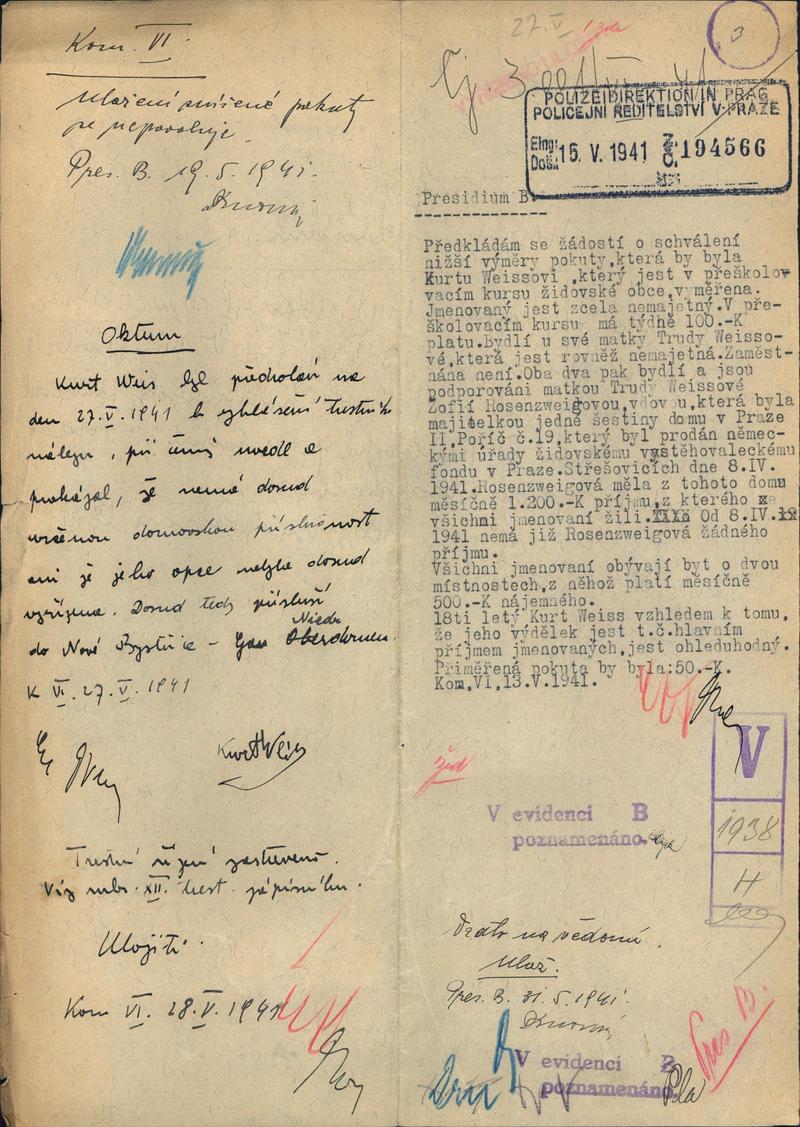 Kom. VI.
Uložení snížené pokuty
se nepovoluje.
Pres. B. 19.5.1941.
Aktum
Kurt Weis byl předvolán na
den 27.V.1941 k vyhlášení trestního
nálezu, při čemž uvedl a
prokázal, že nemá dosud
určenou domovskou příslušnost
ani že jeho opce nebyla dosud
vyřízena. Dosud tedy přísluší
do Nové Bystřice -
K VI. 27.V.1941
Kurt Weis
Trestní řízení zastaveno.
Viz rubr. XII. trest. zápisníku.
Uložiti.
Kom VI. 28.V.1941
27.V.
3
POLIZEIDIREKTION IN PRAG
POLICEJNÍ ŘEDITELSTVÍ V PRAZE
Eing:
Došlo: 15. V. 1941 Z. Č. 194566
Presidium B.
Předkládám se žádostí o schválení
nižší výměry pokuty,která by byla
Kurtu Weissovi ,který jest v přeškolo
vacím kursu židovské obce,vyměřena.
Jmenovaný jest zcela nemajetný.V pře-
školovacím kursu má týdně 100.-K
platu.Bydlí u své matky Trudy Weisso-
vé,která jest rovněž nemajetná.Zaměst-
nána není.Oba dva pak bydlí a jsou
podporováni matkou Trudy Weissové
Žofií Rosenzweigovou,vdovou,která byla
majitelkou jedné šestiny domu v Praze
II,Poříč č.19,který byl prodán němec-
kými úřady židovskému vystěhovaleckému
fondu v Praze.Střešovicích dne 8.IV.
1941.Rosenzweigová měla z tohoto domu
měsíčně 1.200.-K příjmu,z kterého
všichni jmenovaní žili. Od 8.IV.
1941 nemá již Rosenzweigová žádného
příjmu.
Všichni jmenovaní obývají byt o dvou
místnostech,z něhož platí měsíčně
500.-K nájemného.
18ti letý Kurt Weiss vzhledem k tomu,
že jeho výdělek jest t.č.hlavním
příjmem jmenovaných,jest ohleduhodný.
Přiměřená pokuta by byla:50.-K.
Kom,VI,13.V.1941.
žid
V
1938
H
V evidenci B
poznamenáno.
Vzato na vědomí.
Ulož.
Pres. B. 31.5.1941.
Pres B.
V evidenci B
poznamenáno.